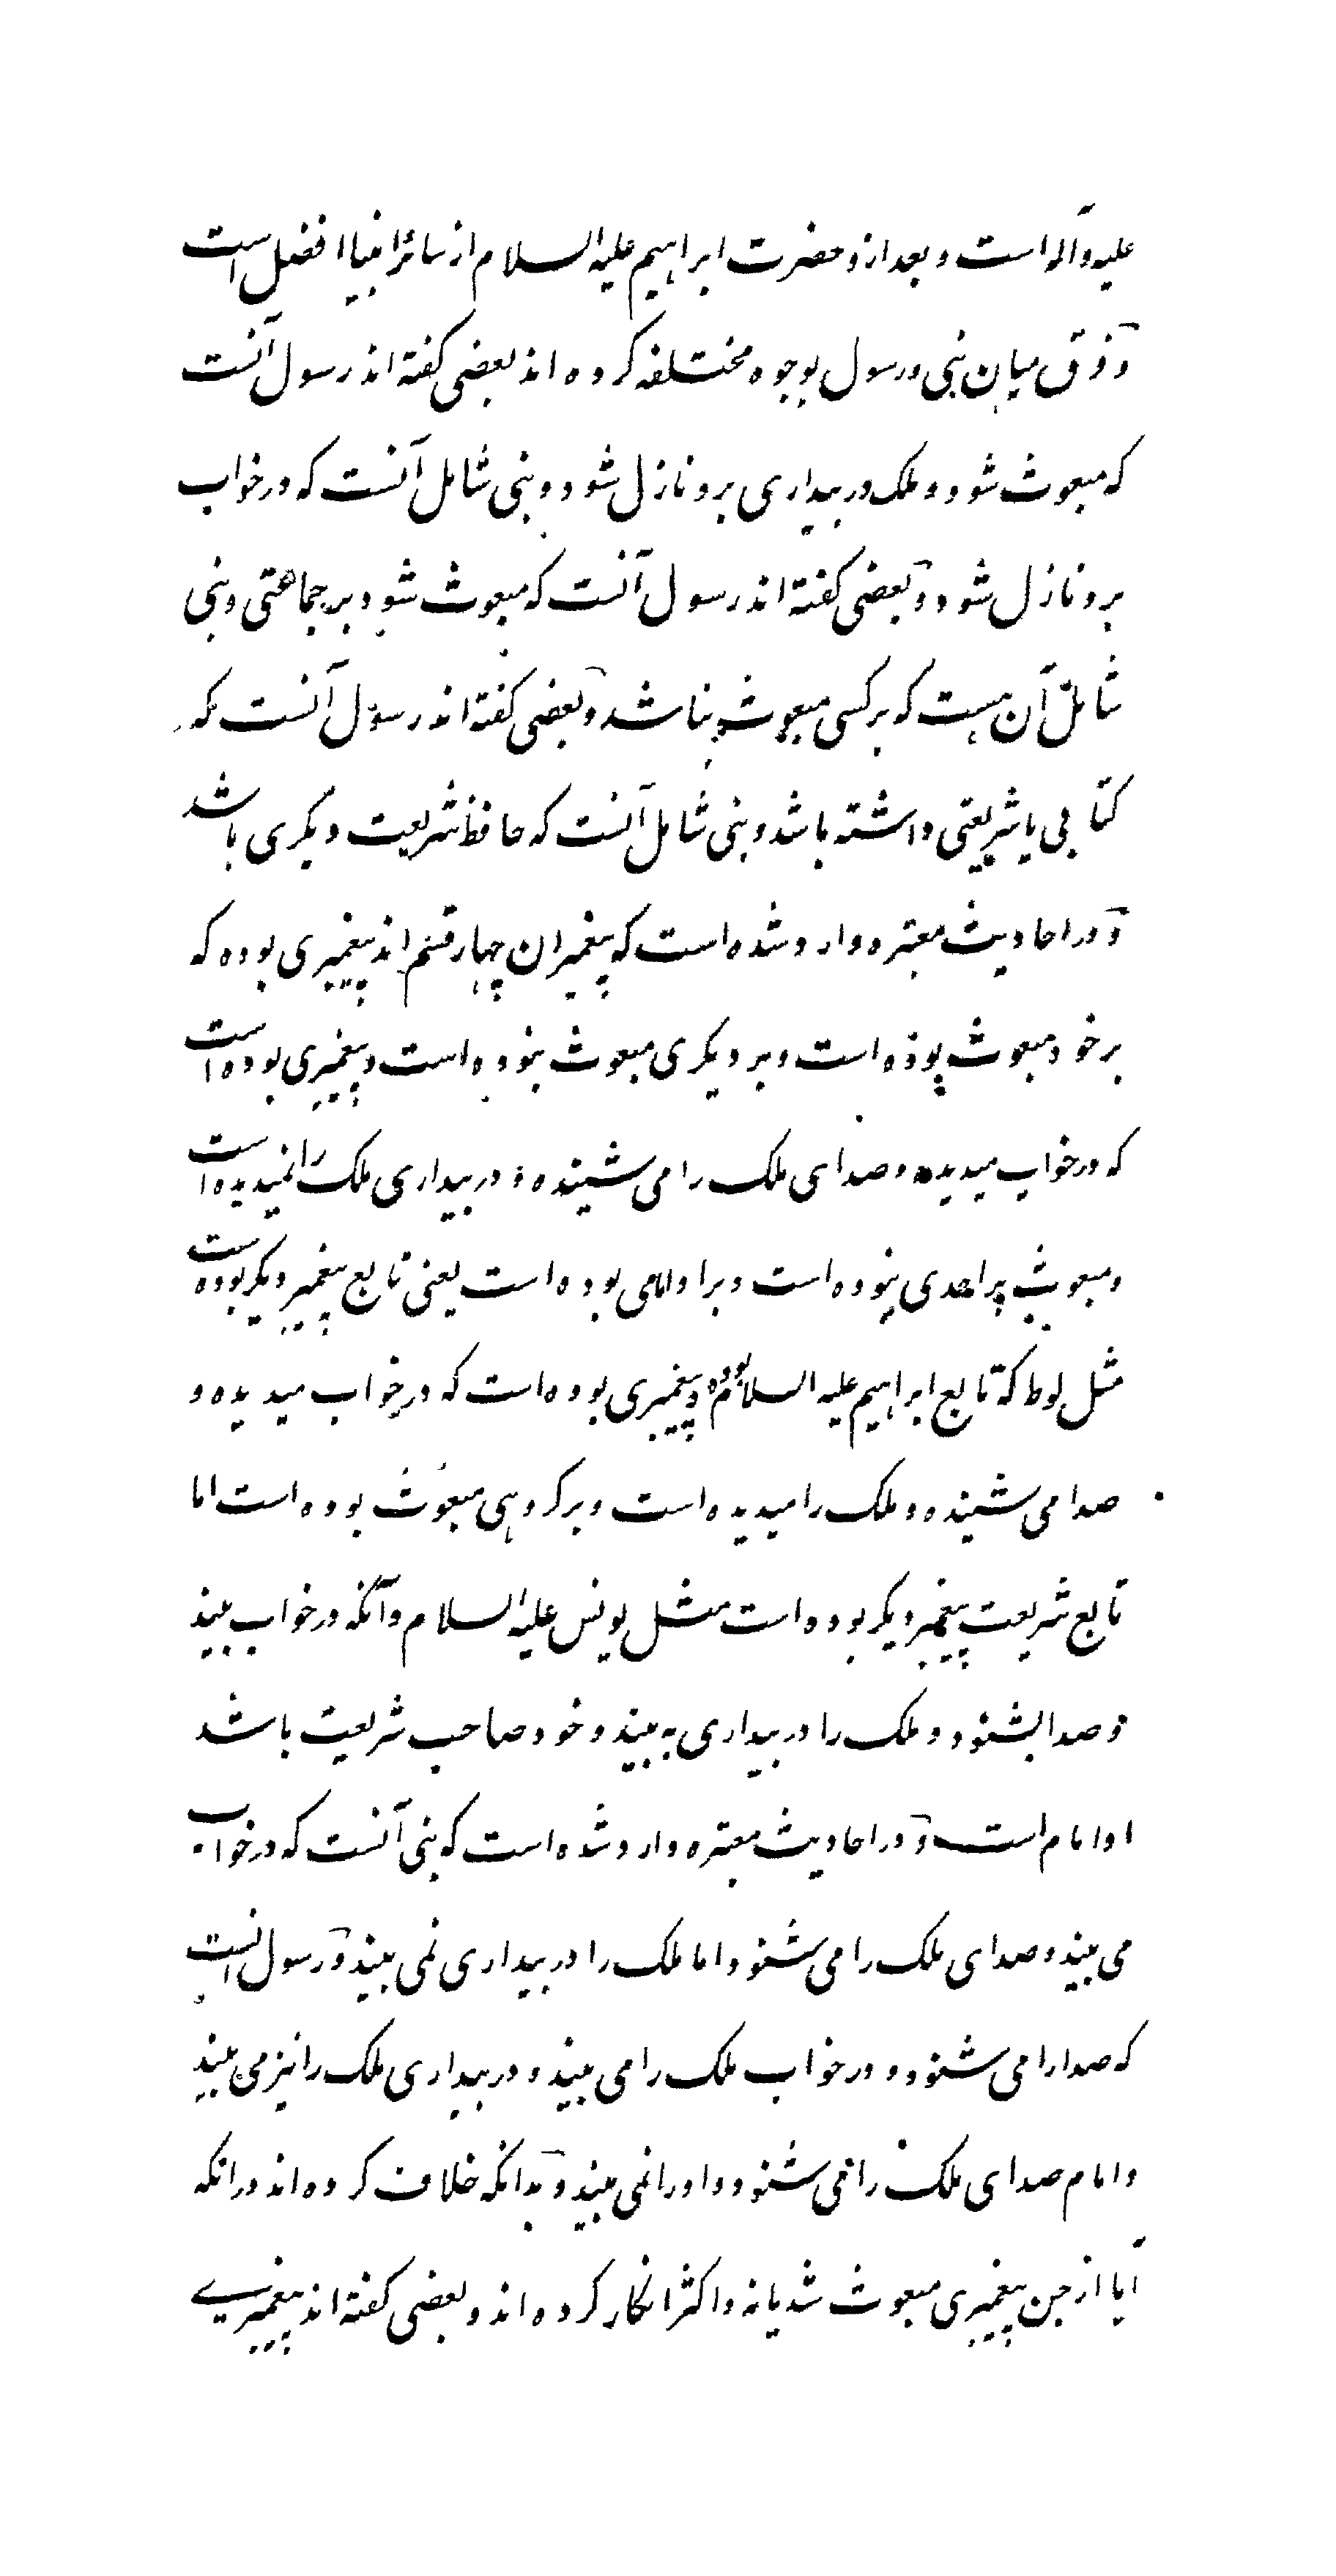 علیه وآله است و بعد ازو حضرت ابراهیم علیه السلام از سائر انبیا افضل است
و فرق میان نبی و رسول بوجوه مختلفه کرده اند بعضی کفته اند رسول آنست
که مبعوث شود و ملک در بیداری برو نازل شود و نبی شامل آنست که در خواب
برو نازل شود و بعضی کفته اند رسول آنست که مبعوث شود بر جماعتی و نبی
شامل آن هست که بر کسی مبعوث نباشد و بعضی کفته اند رسول آنست که
کتابی یا شریعتی داشته باشد و نبی شامل آنست که حافظ شریعت دیکری باشد
و در احادیث معتبره وارد شده است که پیغمبران چهار قسم اند پیغمبری بوده که
بر خود مبعوث بوده است و بر دیکری مبعوث نبوده است و پیغمبری بوده است
که در خواب میدیده و صدای ملک را می شنیده و در بیداری ملک را نمیدیده است
و مبعوث بر احدی نبوده است و بر او امامی بوده است یعنی تابع پیغمبر دیکر بوده است
مثل لوط که تابع ابراهیم علیه السلام بوده و پیغمبری بوده است که در خواب میدیده و
صدا می شنیده و ملک را میدیده است و بر کروهی مبعوث بوده است اما
تابع شریعت پیغمبر دیکر بوده است مثل یونس علیه السلام و آنکه در خواب بیند
و صدا بشنود و ملک را در بیداری به بیند و خود صاحب شریعت باشد
او امام است و در احادیث معتبره وارد شده است که نبی آنست که در خواب
می بیند و صدای ملک را می شنود اما ملک را در بیداری نمی بیند و رسول آنست
که صدا را می شنود و در خواب ملک را می بیند و در بیداری ملک را نیز می بیند
و امام صدای ملک را می شنود و او را نمی بیند و بدانکه خلاف کرده اند در انکه
آیا از جن پیغمبری مبعوث شد یا نه و اکثر انکار کرده اند و بعضی کفته اند پیغمبری